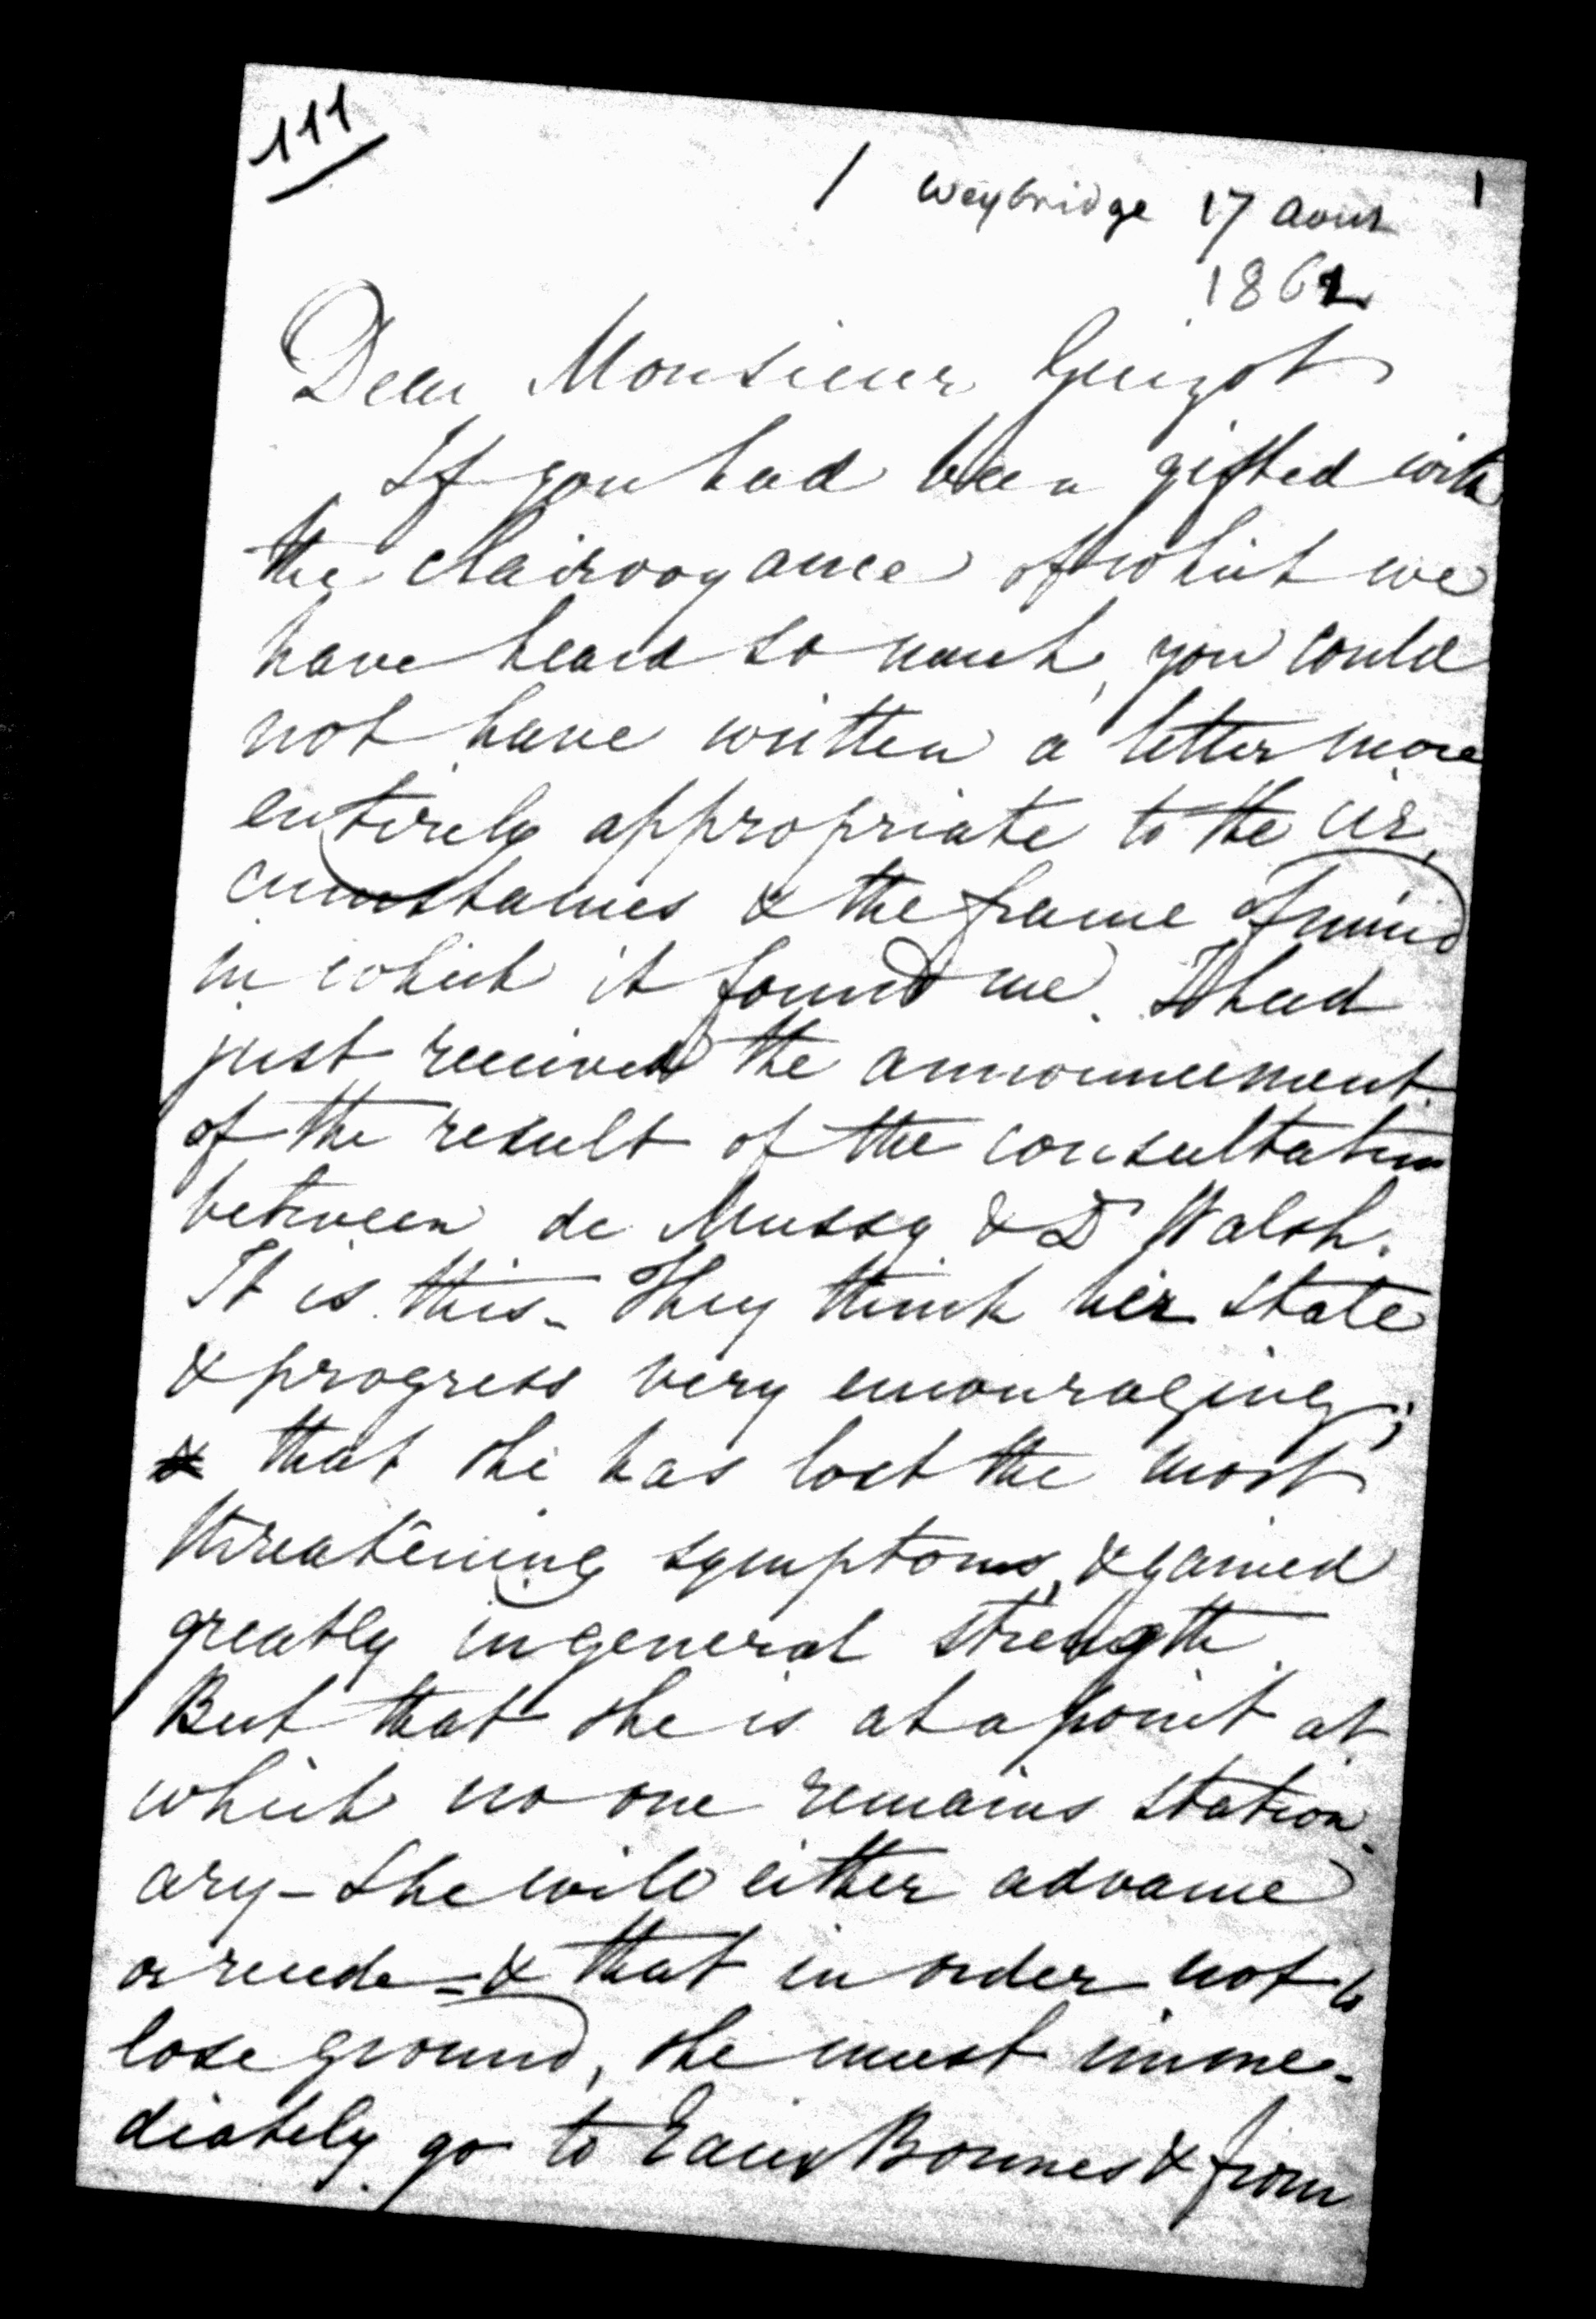 111
1 Weybridge 17 Aout 1
1862
Dear Monsieur Guizot
If you had been gifted with
the Clairvoyance of which we
have heard so much, you could
not have written a letter more
entirely appropriate to the cir-
cumstances & the frame of mind
in which it found me. I had
just received the announcement
of the result of the consultation
between de Mussy & Dr Walsh.
It is this – They think her state
& progress very encouraging;
& that she has lost the most
threatening symptoms, & gained
greatly in general strength.
But that she is at a point at
which no one remains station-
ary – She will either advance
or recede – & that in order not to
lose ground, she must imme-
diately go to Eaux Bonnes & from